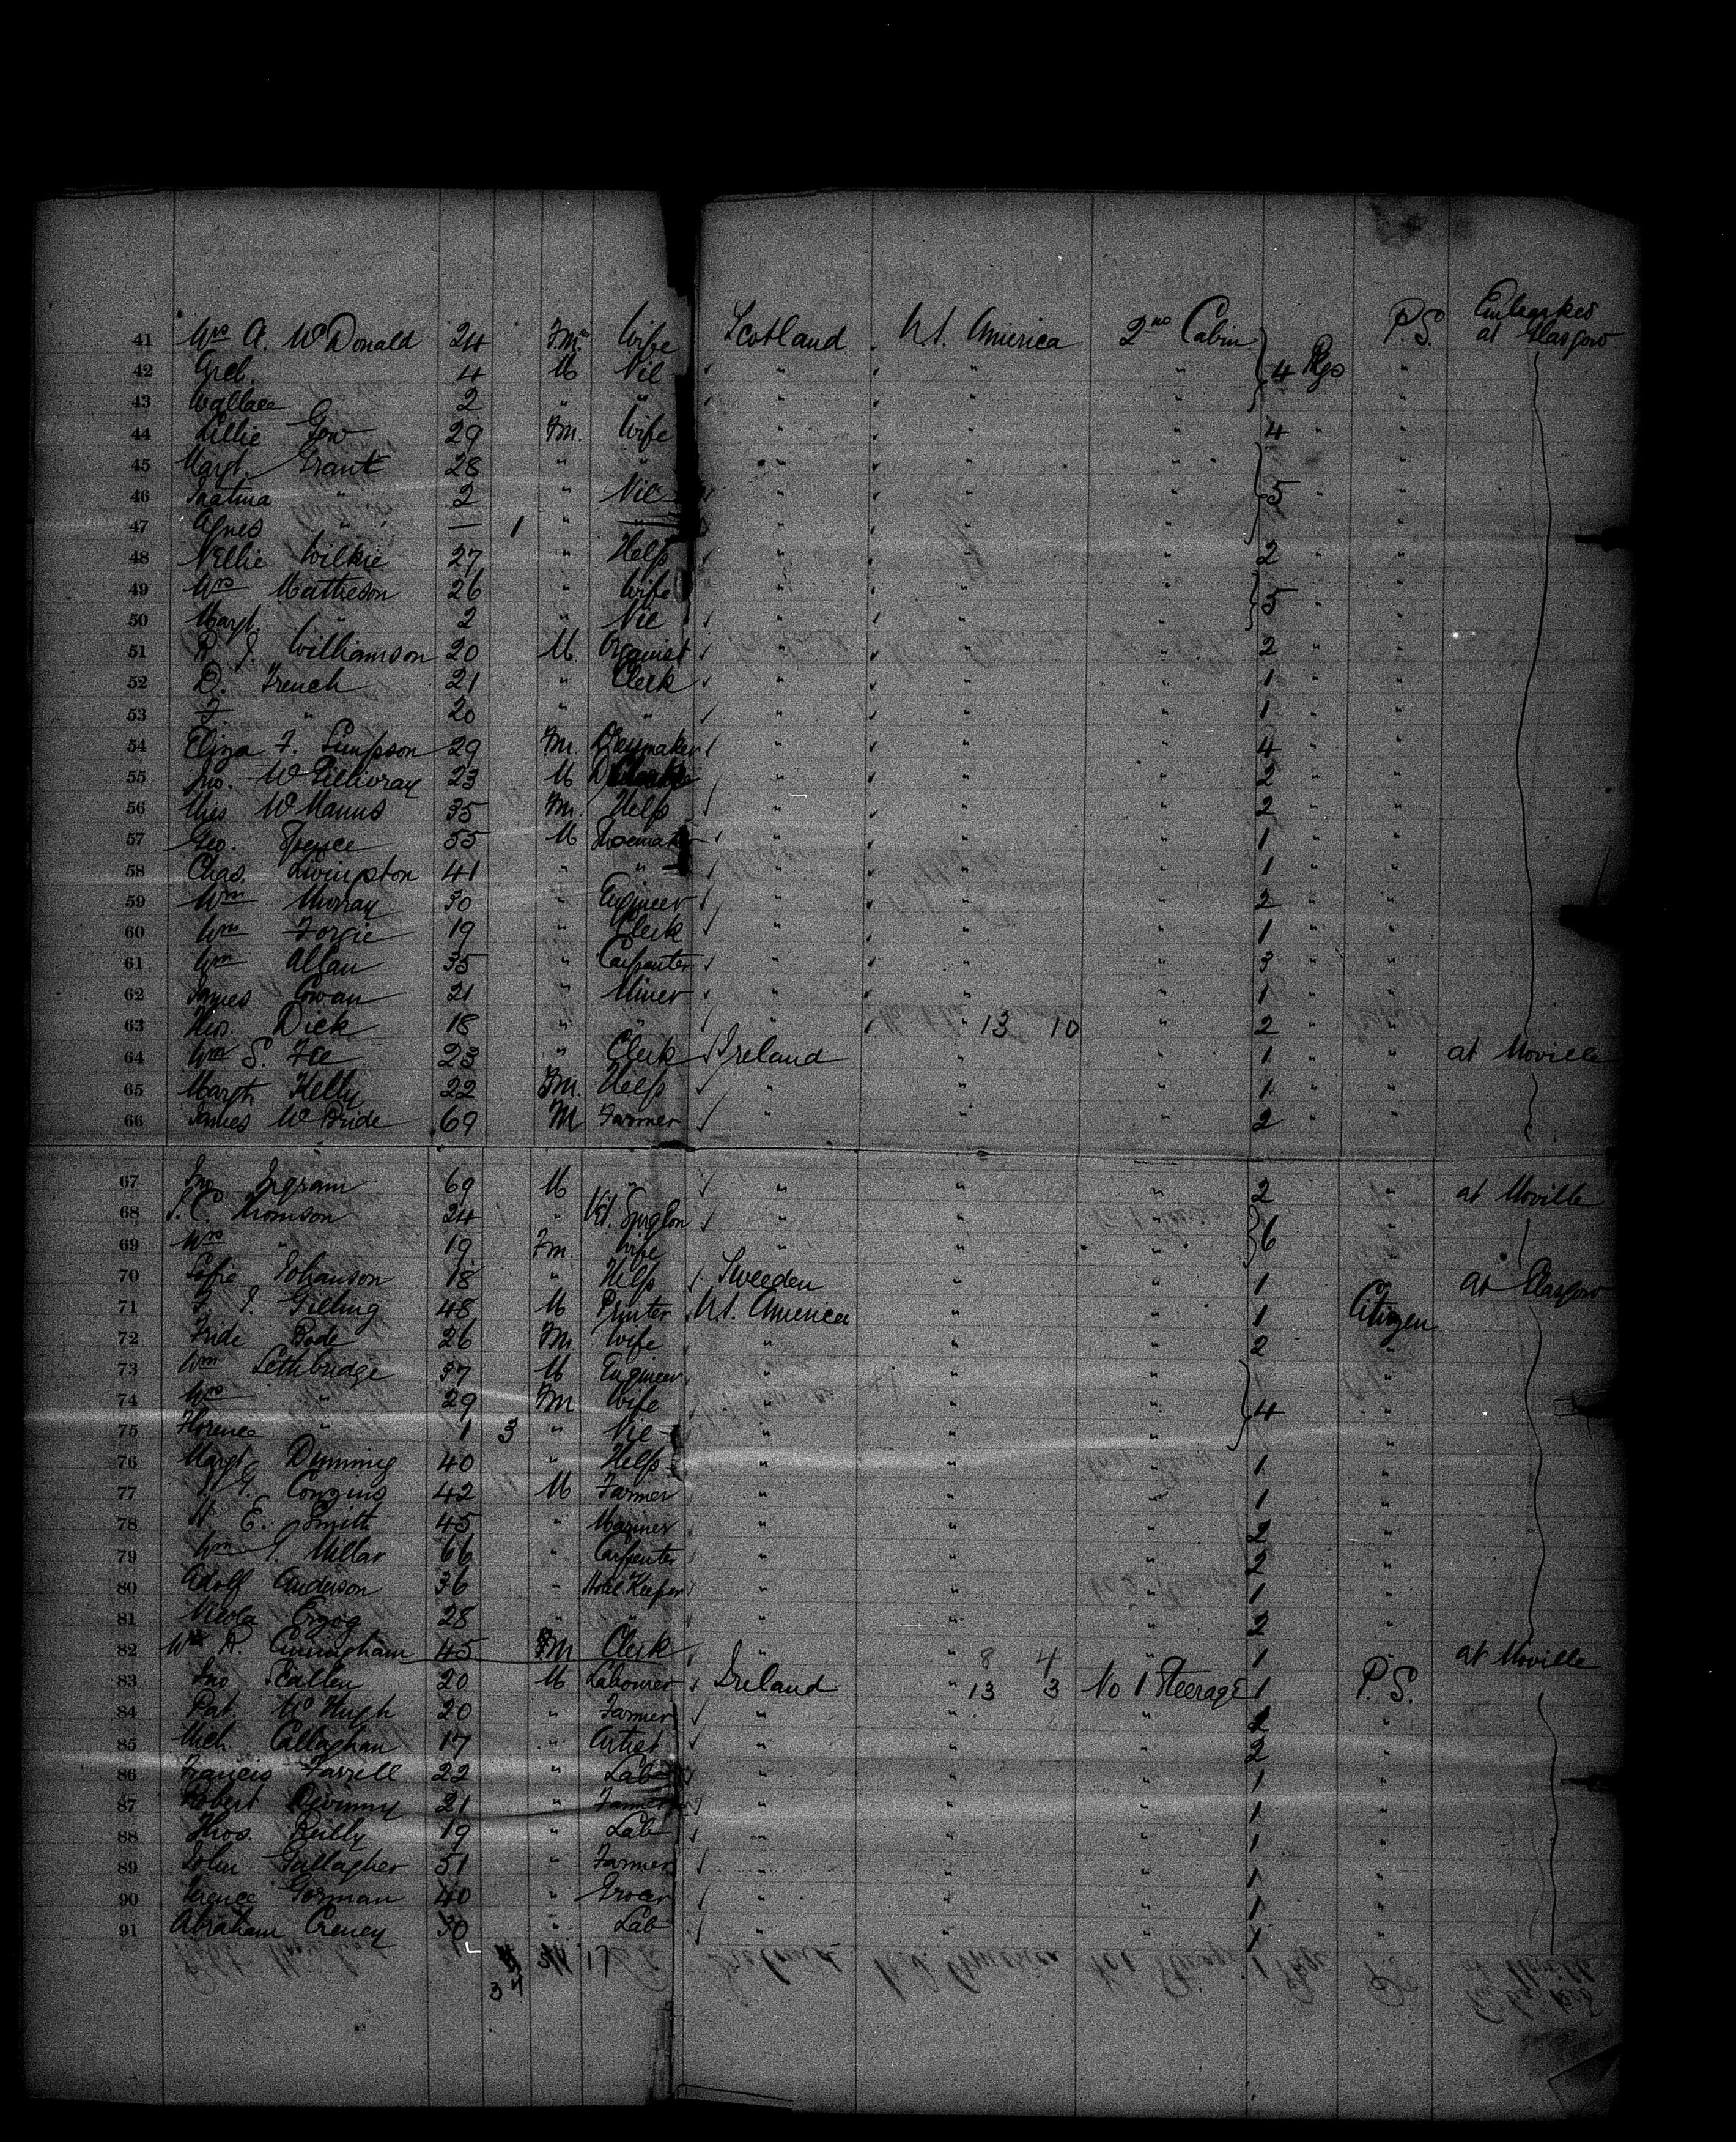 Embarked
41 Mrs A. McDonald 24 Fm. Wife Scotland U.S. America 2nd Cabin P.S. at Glasgow
42 4 M Nil " " " 4 Pkgs "
43 Wallace 2 " " " " " "
44 Lillie Gow 29 Fm. Wife " " " 4 " "
45 Margt. Grant 28 " " " " " " "
46 " 2 " Nil " " " 5 " "
47 Agnes " — 1 " " " " " "
48 Nellie Wilkie 27 " Help " " " 2 " "
49 Mrs Mattheson 26 " Wife " " " 3 " "
50 Margt. " 2 " Nil " " " "
51 R. J. Williamson 20 M. " " " 2 " "
52 D. French 21 " Clerk " " " 1 " "
53 F. " 20 " " " " " 1 " "
54 Eliza F. Simpson 29 Fm. Dressmaker " " " 4 " "
55 Jno. McGillivray 23 M " " " 2 " "
56 McManus 35 Fm. Help " " " 2 " "
57 Geo. Spence 55 M Shoemaker " " " 1 " "
58 Chas. Livingston 41 " " " " " 1 " "
59 Wm Murray 30 " Engineer " " " 2 " "
60 Wm Forgie 19 " Clerk " " " 1 " "
61 Wm Allan 35 " Carpenter " " " 3 " "
62 James Cowan 21 " Miner " " " 1 " "
63 Dick 18 " " " " 13 10 " 2 " "
64 Wm S. Fee 23 " Clerk Ireland " " 1 " " at Moville
65 Margt. Kelly 22 Fm. Help " " " 1 " "
66 James McBride 69 M Farmer " " " 2 " "
67 Jno Ingram 69 M " " " " 2 " at Moville
68 J. C. Thomson 24 " Vet. Surgeon " " " 6 "
69 Mrs " 19 Fm. Wife " " " "
70 Sofie Johanson 18 " Help Sweeden " " 1 " at Glasgow
71 Gilling 48 M Printer U.S. America " " 1 Citizen
72 Fride Bode 26 Fm. Wife " " " 2 "
73 Wm Lethbridge 37 M Engineer " " " "
74 Mrs " 29 Fm Wife " " " 4 "
75 Florence " 1 3 " Nil " " " "
76 Margt. Dimming 40 " Help " " " 1 "
77 42 M Farmer " " " 1 "
78 H. E. Smith 45 " Mariner " " " 2 "
79 Wm J. Millar 66 " Carpenter " " " 2 "
80 Adolf Anderson 36 " Hotel Keeper " " " 1 "
81 Nicola 28 " " " " " 2 "
82 R. Cunningham 45 M Clerk " " 8 4 " 1 " at Moville
83 Jno Scallen 20 M Labourer Ireland " 13 3 No 1 Steerage 1 P.S.
84 Pat. McHugh 20 " Farmer " " " 2 "
85 Mich. Callaghan 17 " Artist " " " 2 "
86 Francis Farrell 22 " Lab " " " 1 "
87 Robert Devinny 21 " Farmer " " " 1 "
88 Thos. Reilly 19 " Lab " " " 1 "
89 John Gallagher 51 " Farmer " " " 1 "
90 Terence Gorman 40 " Grocer " " " 1 "
91 Abraham Creney 30 " Lab " " " 1 "
34